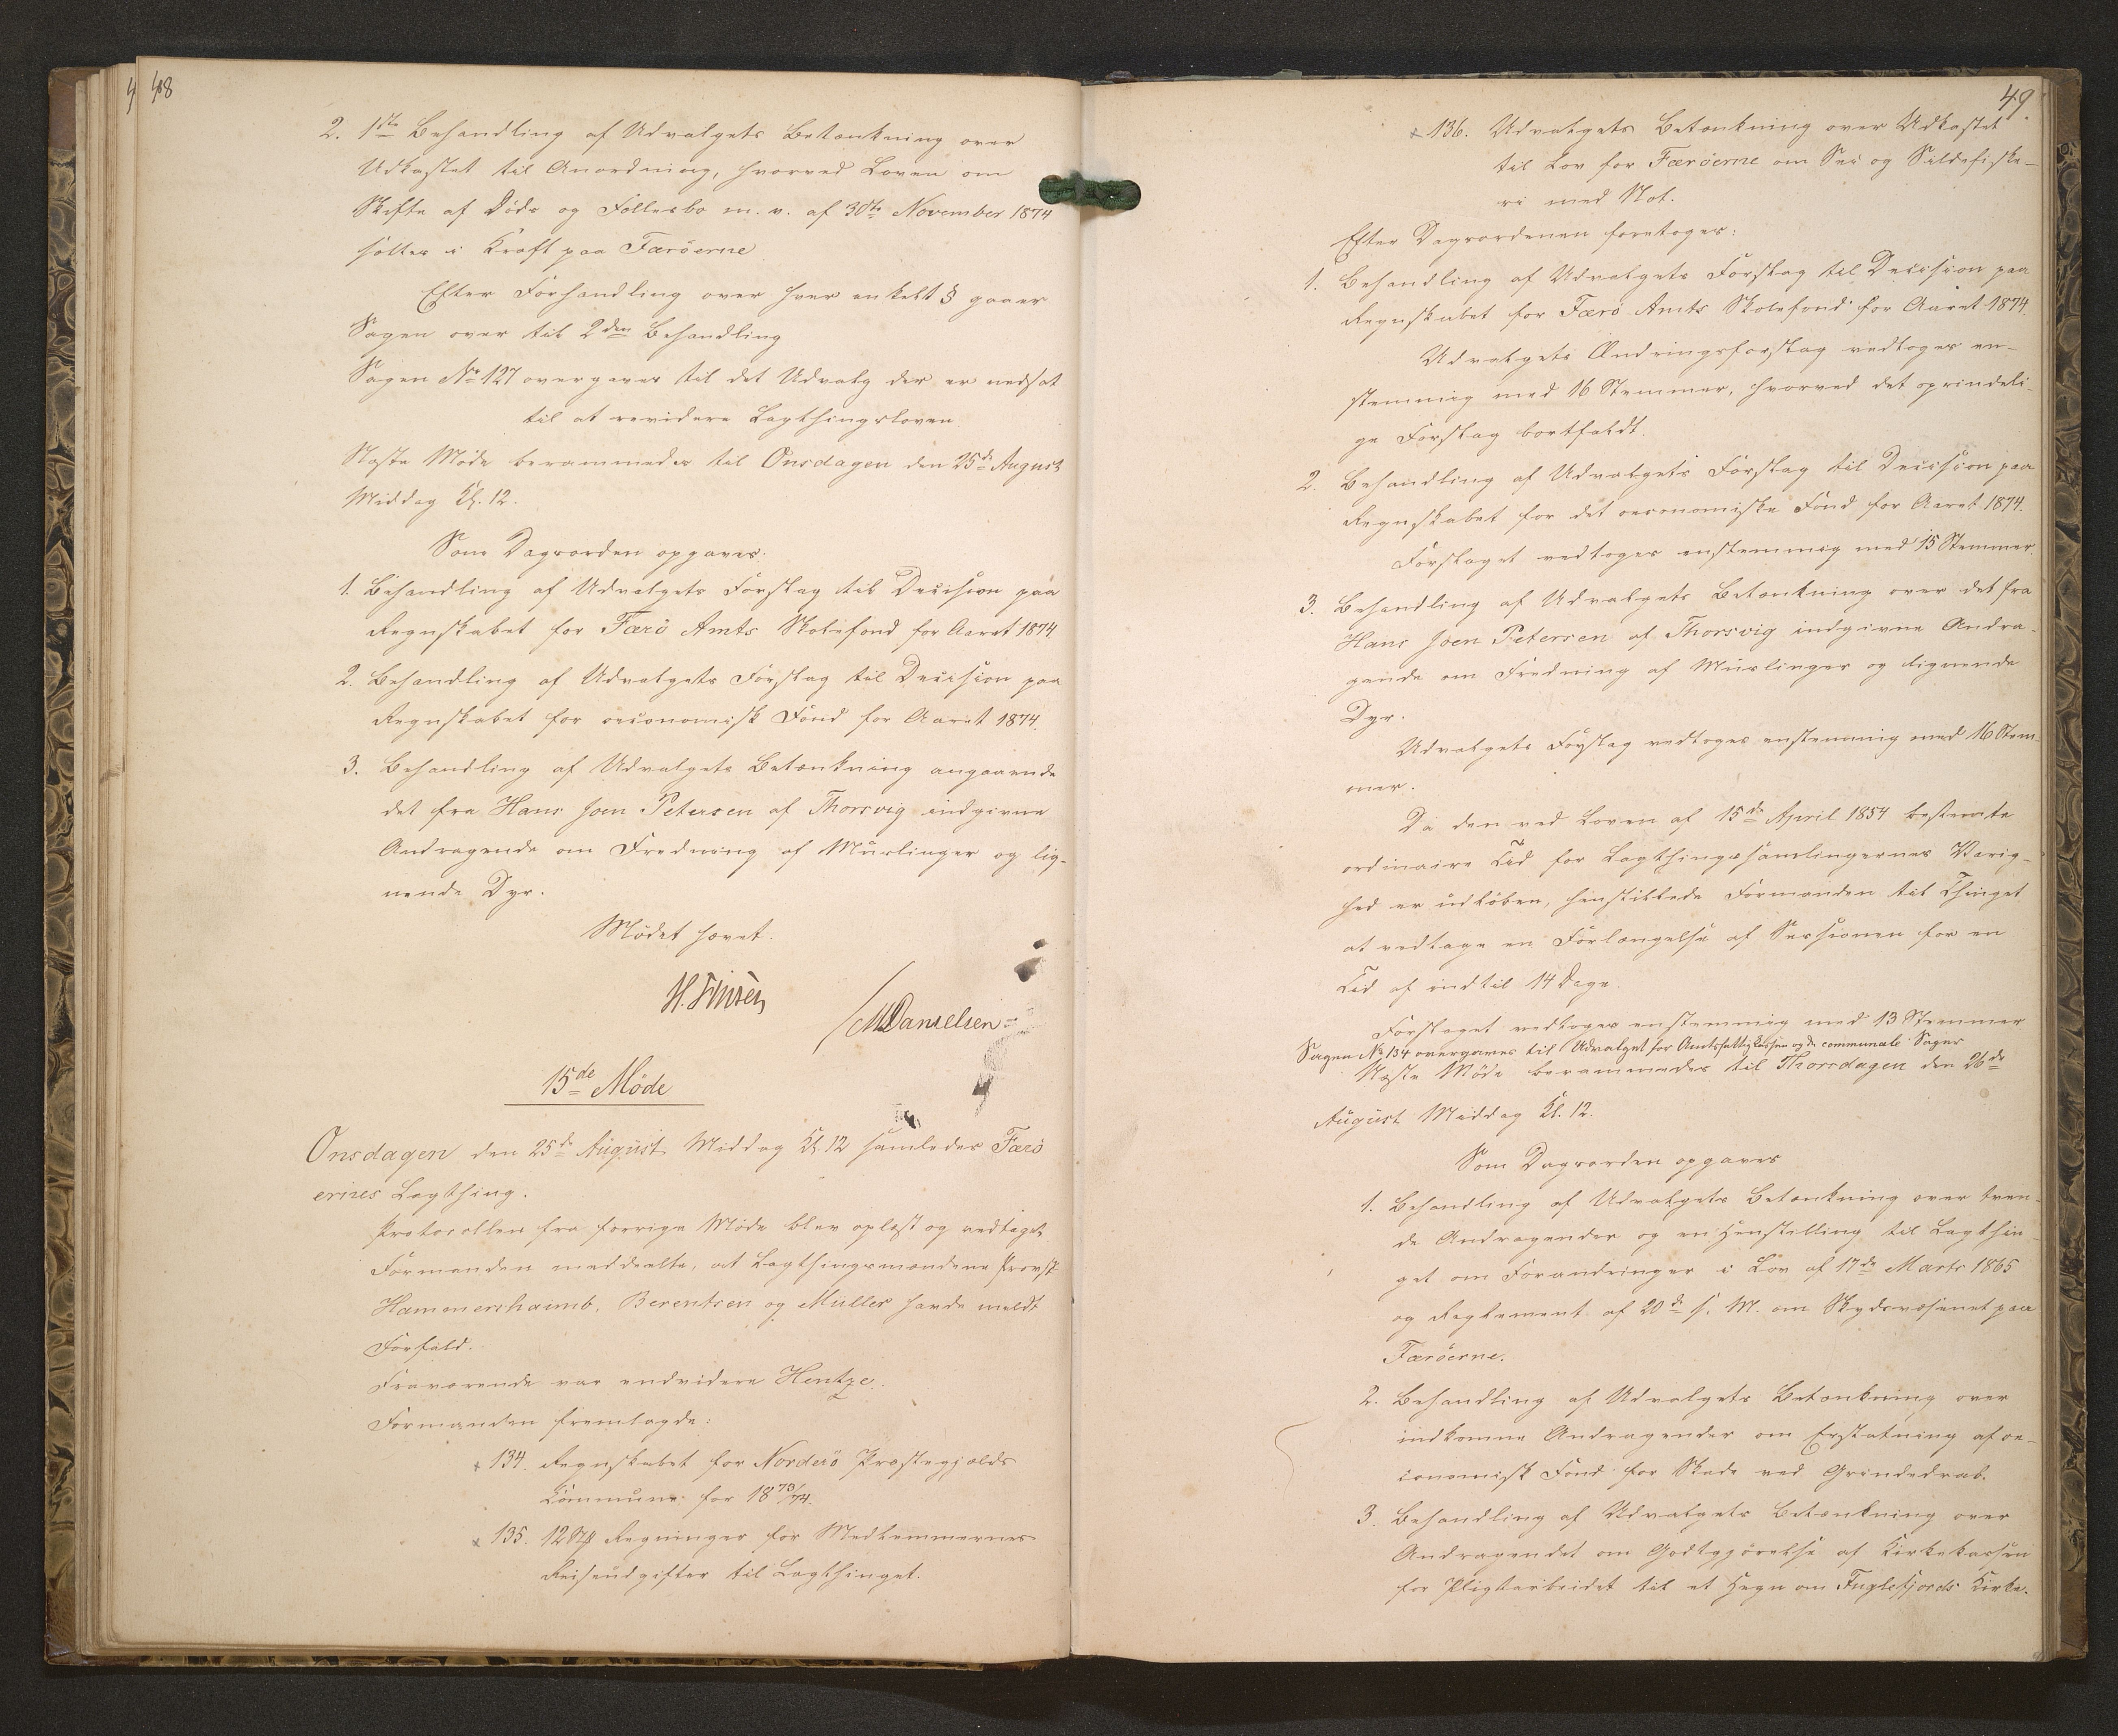 48
2. 1ste Behandling af Udvalgets Betænkning over
Udkastet til Anordning, hvorved Loven om
Skifte af Døds og Fællesbo m. v. af 30te November 1874
sættes i Kraft paa Færöerne
Efter Forhandling over hver enkelt § gaaer
Sagen over til 2den Behandling
Sagen No 127 overgaves til det Udvalg der er nedsat
til at revidere Lagthingsloven
Næste Møde berammedes til Onsdagen den 25de August
Middag Kl. 12.
Som Dagsorden opgaves:
1. Behandling af Udvalgets Forslag til Decision paa
Regnskabet for Færö Amts Skolefond for Aaret 1874
2. Behandling af Udvalgets Forslag til Decision paa
Regnskabet for oeconomisk Fond for Aaret 1874.
3. Behandling af Udvalgets Betænkning angaaende
det fra Hans Joen Petersen af Thorsvig indgivne
Andragende om Fredning af Muslinger og lig-
nende Dyr.
Mødet hævet.
H. Finsen
MDanielsen
15de Møde
Onsdagen den 25de August Middag Kl. 12 samledes Færö
ernes Lagthing.
Protocollen fra forrige Møde blev oplæst og vedtaget.
Formanden meddeelte, at Lagthingsmændene Provst
Hammershaimb, Berentsen og Müller havde meldt
Forfald.
Fraværende var endvidere Hentze.
Formanden fremlagde:
x 134. Regnskabet for Norderö Præstegjelds
Commune for 1873/74.
x 135. 12 Stk Regninger for Medlemmernes
Reiseudgifter til Lagthinget.
49.
x 136. Udvalgets Betænkning over Udkastet
til Lov for Færöerne om Sei og Sildefiske-
ri med Not.
Efter Dagsordenen foretoges:
1. Behandling af Udvalgets Forslag til Decision paa
Regnskabet for Færö Amts Skolefond for Aaret 1874.
Udvalgets Ændringsforslag vedtoges en-
stemmig med 16 Stemmer, hvorved det oprindeli-
ge Forslag bortfaldt.
2. Behandling af Udvalgets Forslag til Decision paa
Regnskabet for det oeconomiske Fond for Aaret 1874.
Forslaget vedtoges enstemmig med 15 Stemmer.
3. Behandling af Udvalgets Betænkning over det fra
Hans Joen Petersen af Thorsvig indgivne Andra-
gende om Fredning af Muslinger og lignende
Dyr.
Udvalgets Forslag vedtoges enstemmig med 16 Stem-
mer.
Da den ved Loven af 15de April 1854 bestemte
ordinaire Tid for Lagthingssamlingernes Varig-
hed er udløben, henstillede Formanden til Thinget
at vedtage en Forlængelse af Sessionen for en
Tid af indtil 14 Dage.
Forslaget vedtoges enstemmig med 13 Stemmer
Sagen No 134 overgaves til Udvalget for Amtsfattigkassen og de communale Sager
Næste Møde berammedes til Thorsdagen den 26de
August Middag Kl. 12.
Som Dagsorden opgaves
1. Behandling af Udvalgets Betænkning over tven-
de Andragender og en Henstilling til Lagthin-
get om Forandringer i Lov af 17de Marts 1865
og Reglement af 20de s. M. om Skydsvæsenet paa
Færöerne.
2. Behandling af Udvalgets Betænkning over
indkomne Andragender om Erstatning af oe-
conomisk Fond for Skade ved Grindedrab.
3. Behandling af Udvalgets Betænkning over
Andragendet om Godtgjørelse af Kirkekassen
for Pligtarbeidet til et Hegn om Fuglefjords Kirke.